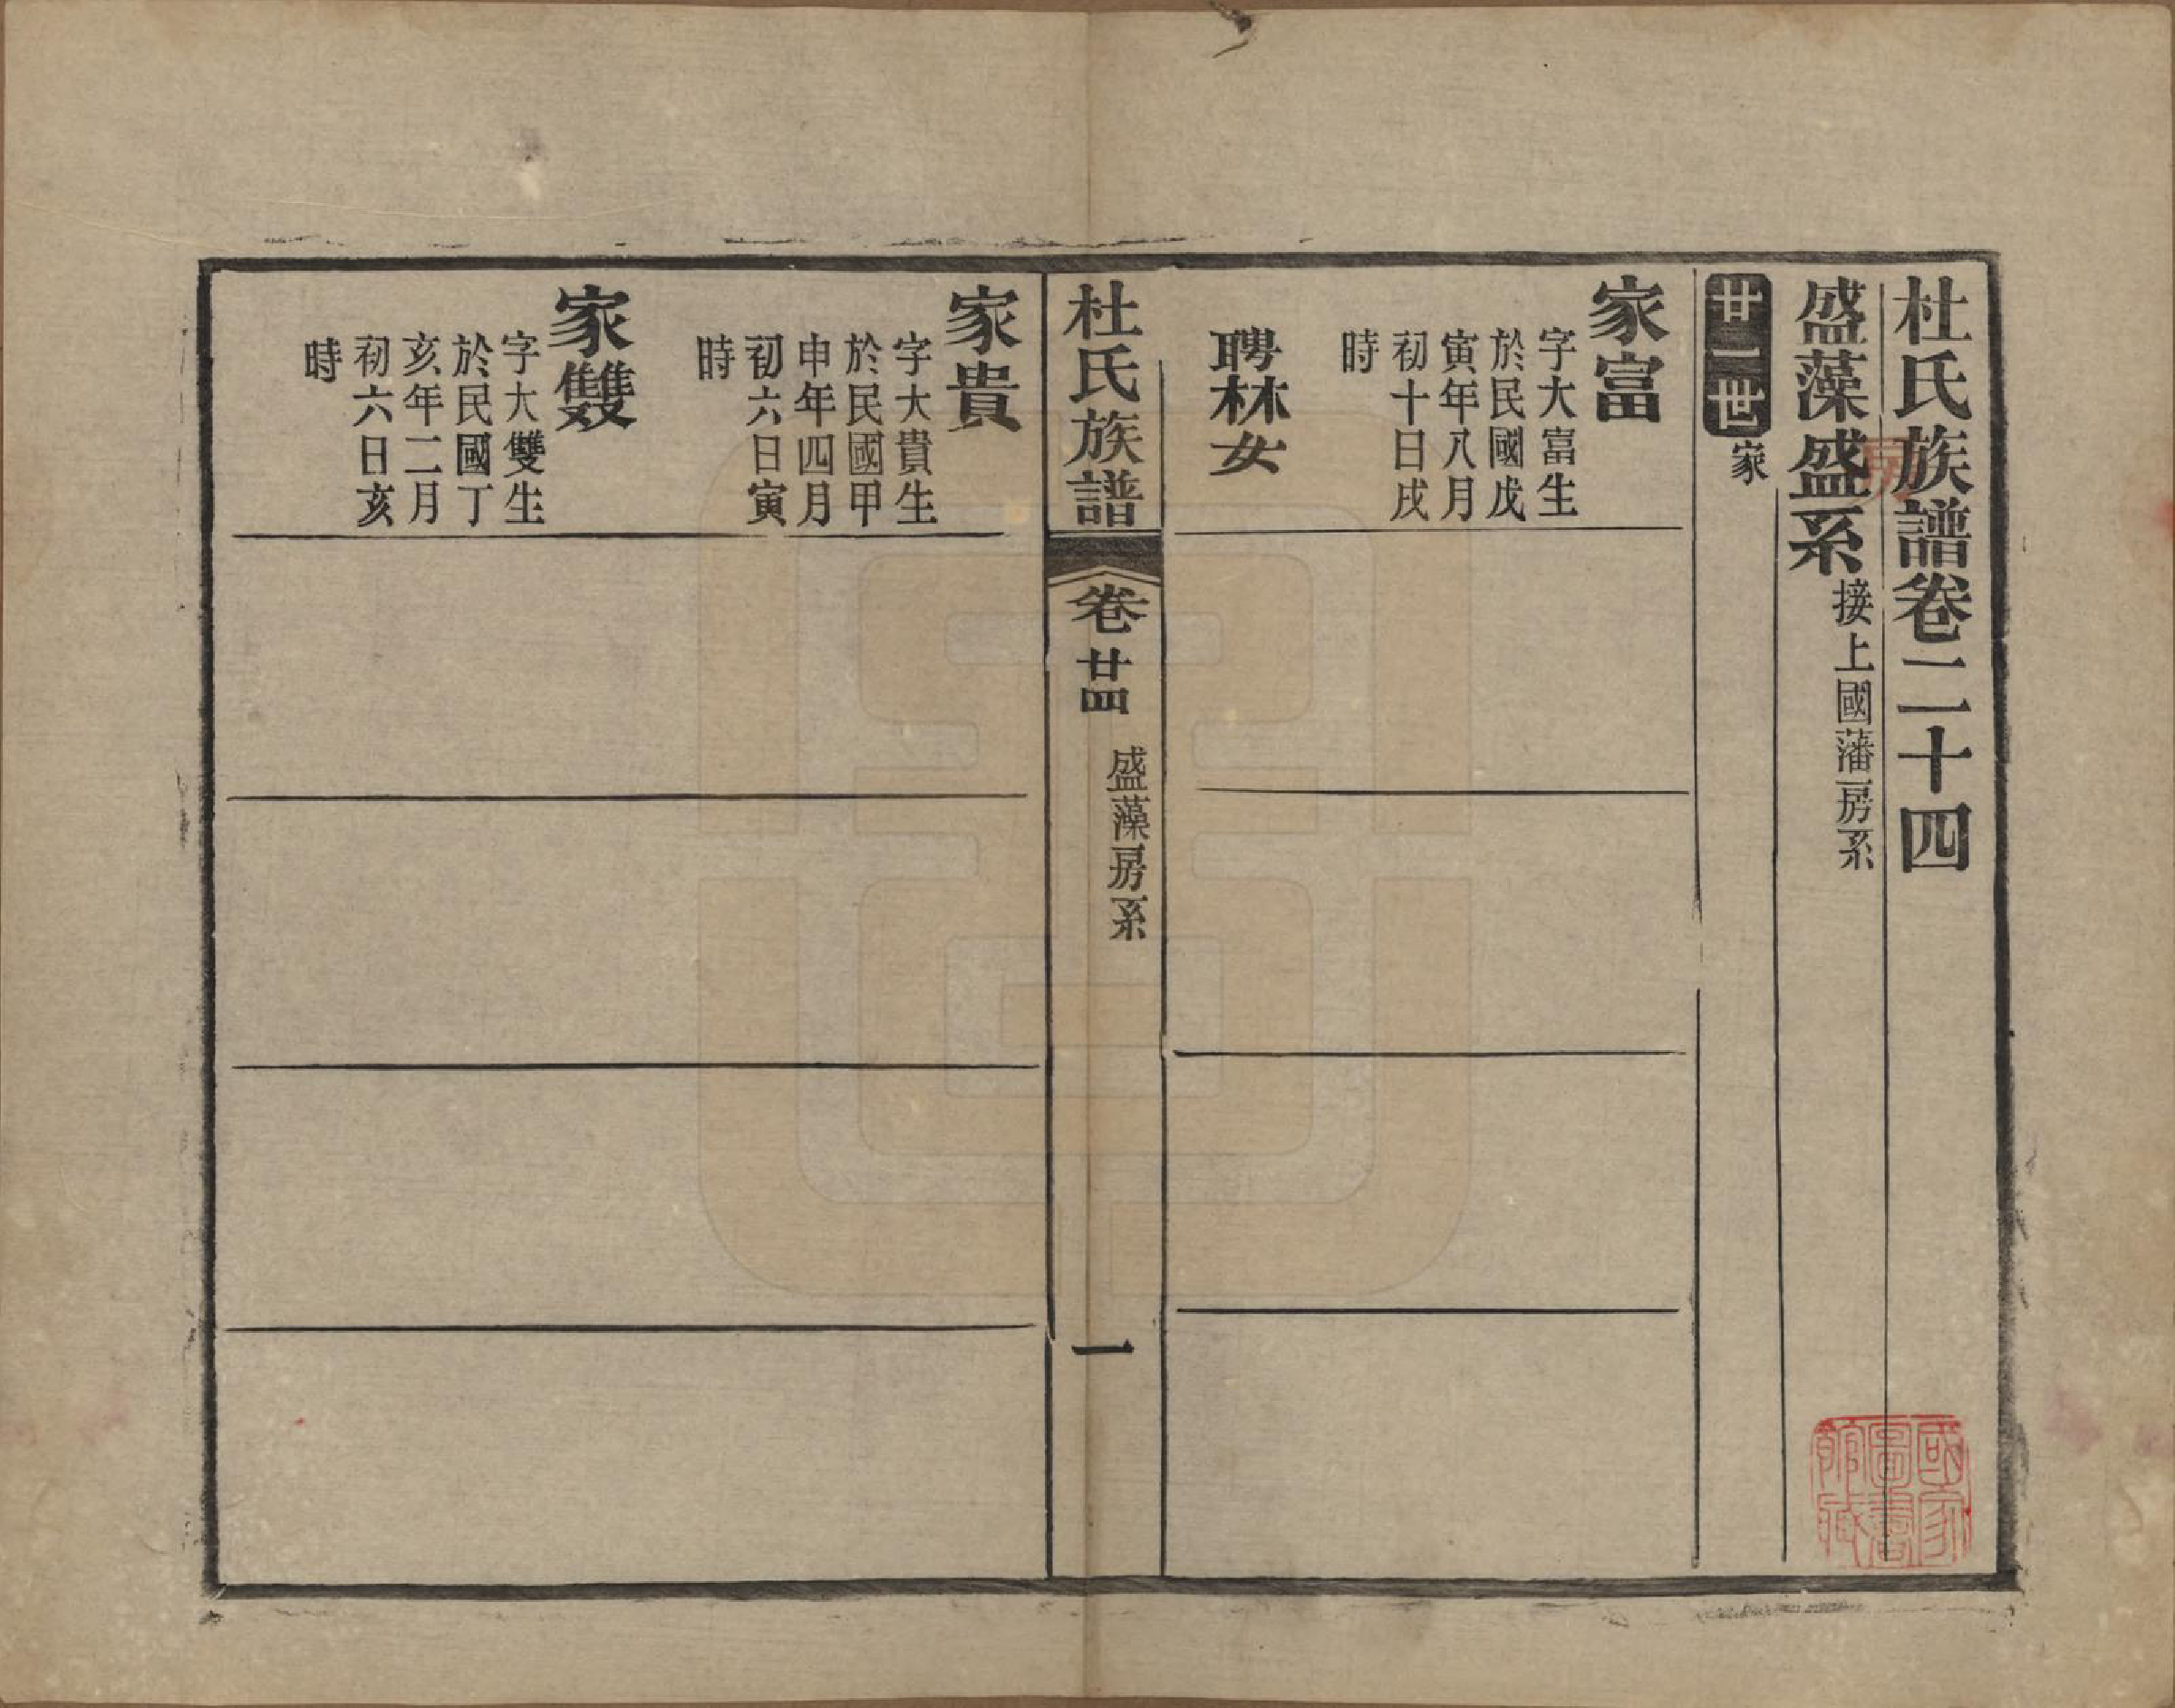 杜氏族譜卷二十四
盛藻盛系接上國藩房系
廿一世家
家富
字大富生
於民國戊
寅年八月
初十日戌
時
聘林女
杜氏族譜
卷廿四
盛藻房系
一
家貴
字大貴生
於民國甲
申年四月
初六日寅
時
家雙
字大雙生
於民國丁
亥年二月
初六日亥
時
國家
圖書
館藏